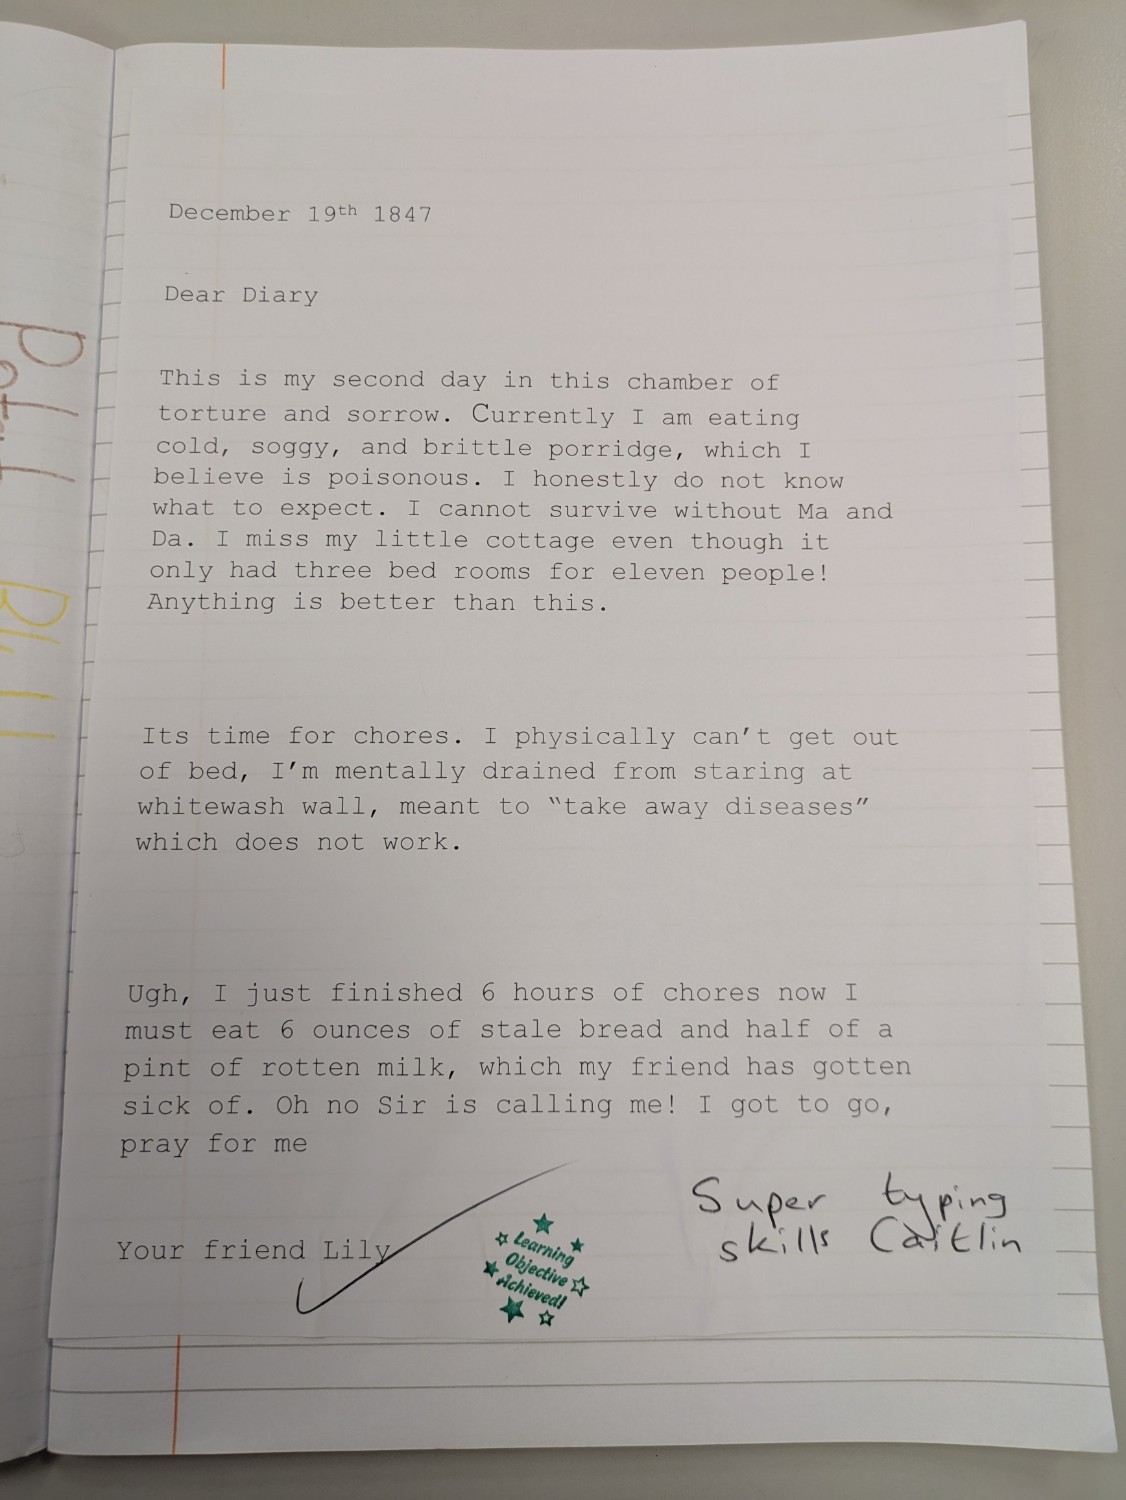 December 19th 1847
Dear Diary
This is my second day in this chamber of
torture and sorrow. Currently I am eating
cold, soggy, and brittle porridge, which I
believe is poisonous. I honestly do not know
what to expect. I cannot survive without Ma and
Da. I miss my little cottage even though it
only had three bed rooms for eleven people!
Anything is better than this.
Its time for chores. I physically can’t get out
of bed, I’m mentally drained from staring at
whitewash wall, meant to “take away diseases”
which does not work.
Ugh, I just finished 6 hours of chores now I
must eat 6 ounces of stale bread and half of a
pint of rotten milk, which my friend has gotten
sick of. Oh no Sir is calling me! I got to go,
pray for me
Your friend Lily
Learning
Objective
Achieved!
Super typing
skills Caitlin